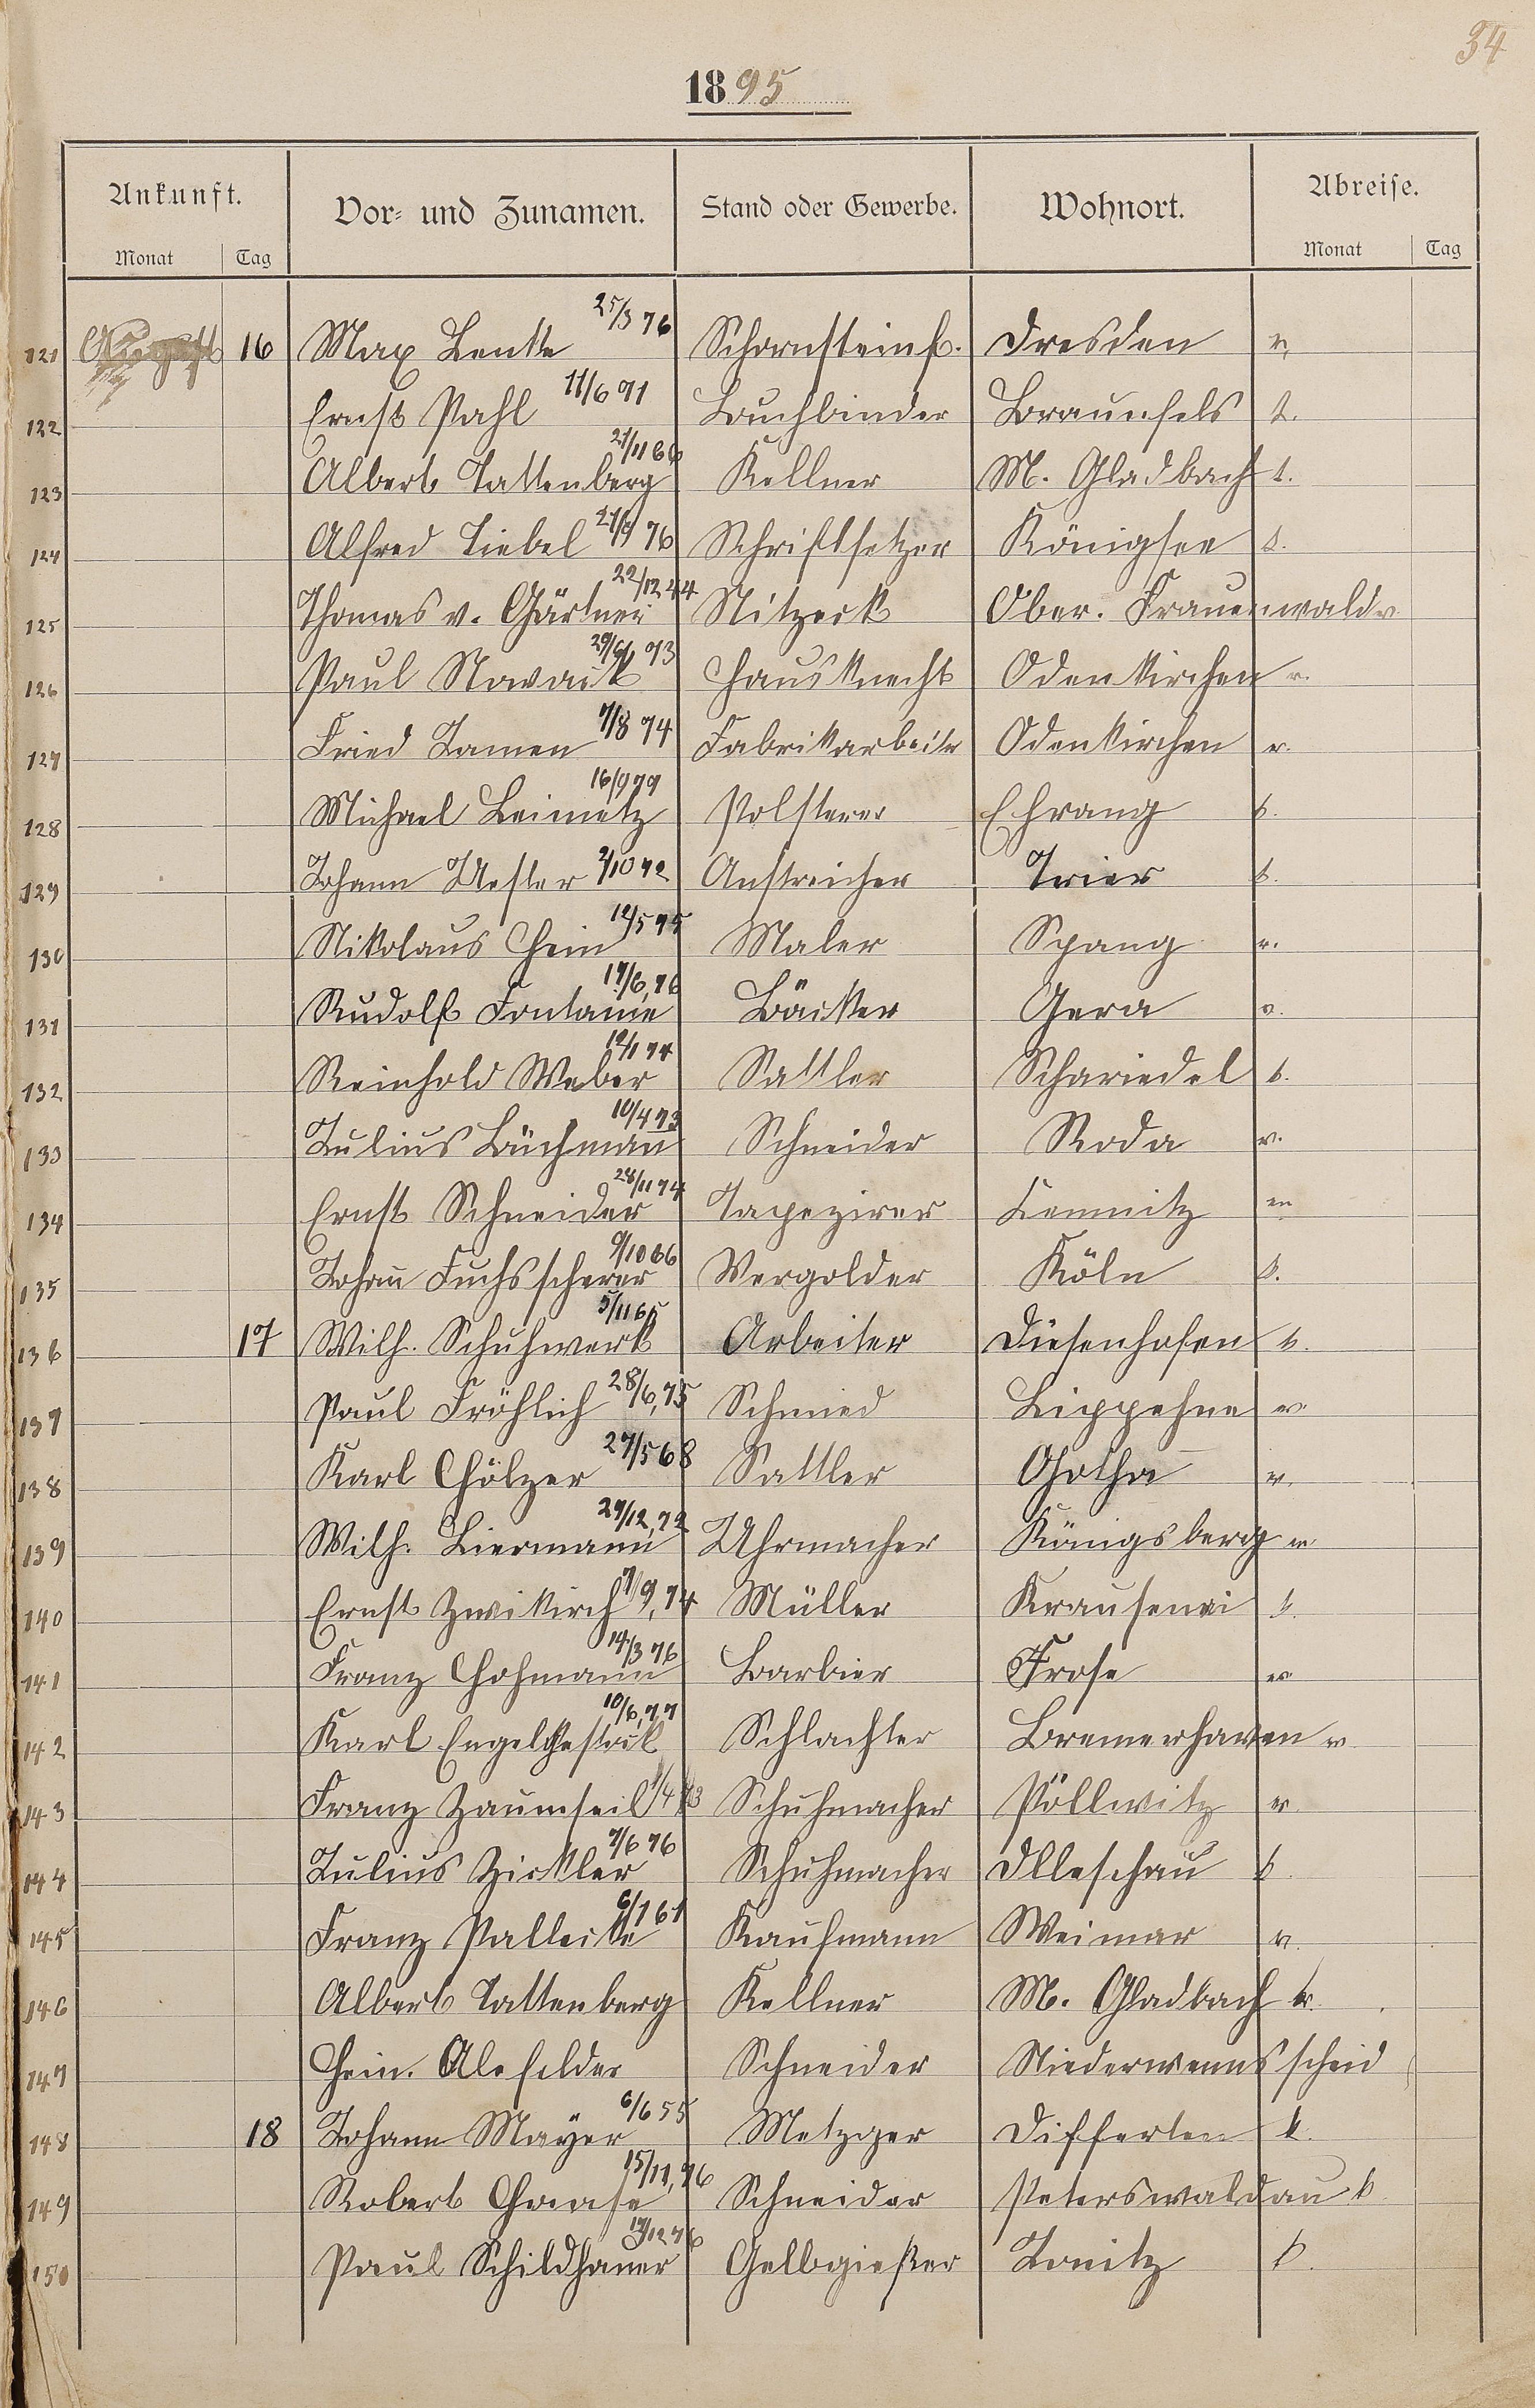 34
1895
Ankunft. Vor= und Zunamen. Stand oder Gewerbe. Wohnort. Abreise.
Monat Tag Monat Tag
121 August 16 Max Lentte 25/3 76 Schornsteinf. Dresden
122 Ernst Pahl 11/6 71 Buchbinder Braunfels
123 Albert Tattenberg 27/11 66 Kellner M. Gladbach
124 Alfred Liebel Schriftsetzer Königsee
125 Thomas v. Gärtner 22/12 44 Ober. Frauenwald
126 Paul Nowack Hausknecht Odenkirchen
127 Fried Tamen 7/8 74 Fabrikarbeitr Odenkirchen
128 Michael Leimetz 16/9 79 Polsterer Ehrang
129 Johann Uester Anstreicher Trier
130 Nikolaus Hein 12/5 75 Maler Spang
131 Rudolf Fontaine 17/6, 76 Bäcker Gera
132 Reinhold Weber 12/1 74 Sattler Schariedel
133 Julius Büchmann 10/4 73 Schneider Roda
134 Ernst Schneider 28/11 74 Tapezirer Kemnitz
135 Johann Fuchsscherer 9/10 66 Vergolder Köln
136 17 Wilh. Schuhwerk 5/11 65 Arbeiter Diesenhofen
137 Paul Fröhlich 28/6, 75 Schmied Lippehne
138 Karl Hölzer 27/5 68 Sattler Gotha
139 Wilh. Biermann 27/12, 72 Uhrmacher Königsberg
140 Ernst Zwikirch 7/9, 74 Müller
141 Franz Hohmann 14/3 76 Barbier Frose
142 Karl 10/6, 77 Schlachter Bremerhaven
143 Franz Zaumseil 1/4 73 Schuhmacher Pöllwitz
144 Julius Zickler 7/6 76 Schuhmacher Olleschau
145 Franz Palleske 6/1 61 Kaufmann Weimar
146 Albert Tattenberg Kellner M. Gladbach
147 Hein. Alefelder Schneider Niederwennsscheid
148 18 Johann Mayer 6/6 55 Metzger Differten
149 Robert Haase 15/11, 76 Schneider Peterswaldau
150 Paul Schildhauer Gelbgießer